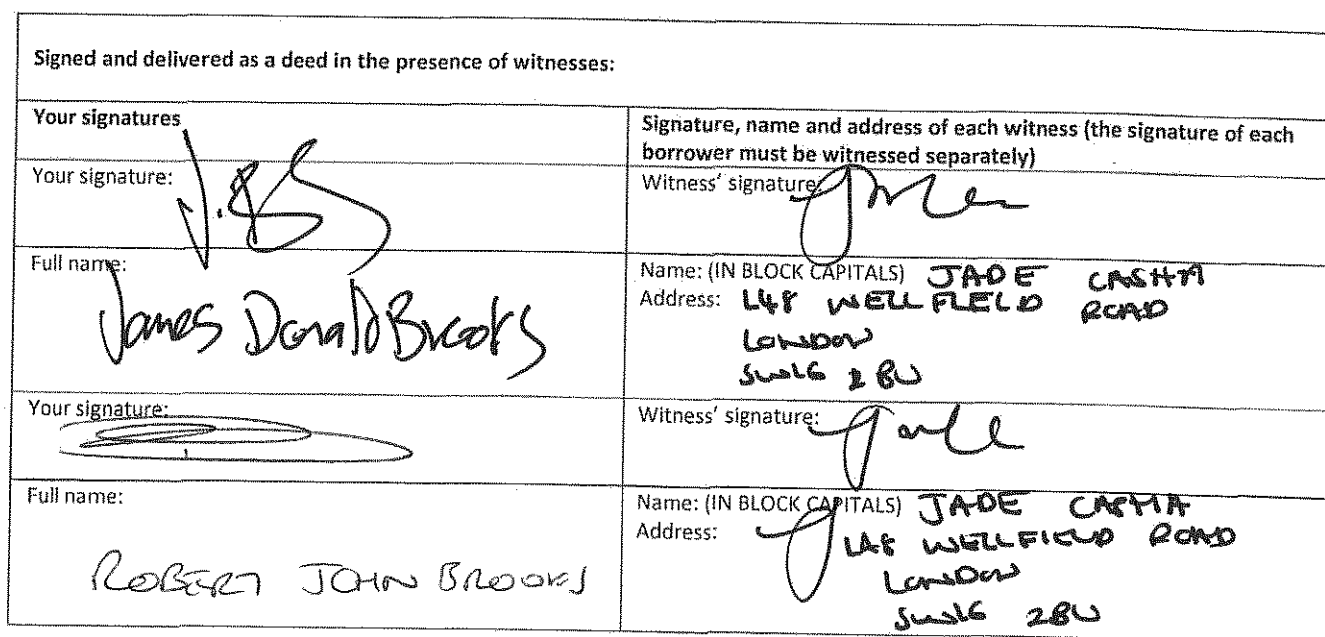 Signed and delivered as a deed in the presence of witnesses:
Your signatures
Signature, name and address of each witness (the signature of each
borrower must be witnessed separately)
Your signature:
Witness' signature:
Full name:
James Donald Brooks
Name: (IN BLOCK CAPITALS) JADE CASHA
Address: 148 WELLFIELD ROAD
LONDON
SW16 2BU
Your signature:
Witness' signature:
Full name:
ROBERT JOHN BROOKS
Name: (IN BLOCK CAPITALS) JADE CASHA
Address: 148 WELLFIELD ROAD
LONDON
SW16 2BU